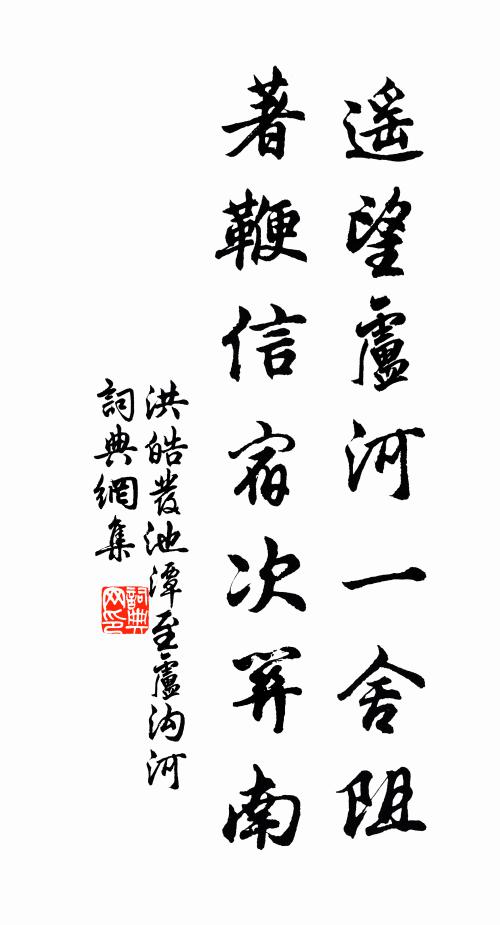 遥望盧河一舍阻
著鞭信宿次南
洪皓發池潭至盧沟河
詞典網集
詞典网印